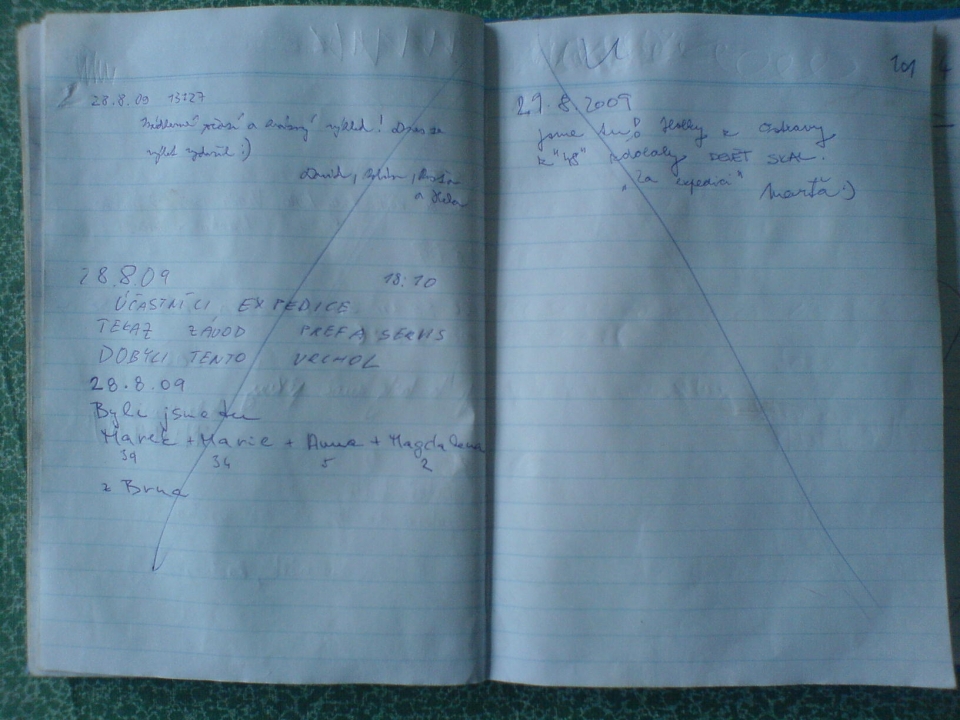 28.8.09 13:27
a krásný výhled!
výlet vydařil :)
David,
a
28.8.09 18:10
ÚČASTNÍCI EXPEDICE
TEKAZ ZÁVOD PREFA SERVIS
DOBYLI TENTO VRCHOL
28.8.09
Byli jsme tu
Marek + Marie + Anna + Magdalena
39 34 5 2
z Brna
29.8.2009
jsme tu! Holky z Ostravy
k "48" zdolaly DESET SKAL.
"Za expedici"
Marťa :)